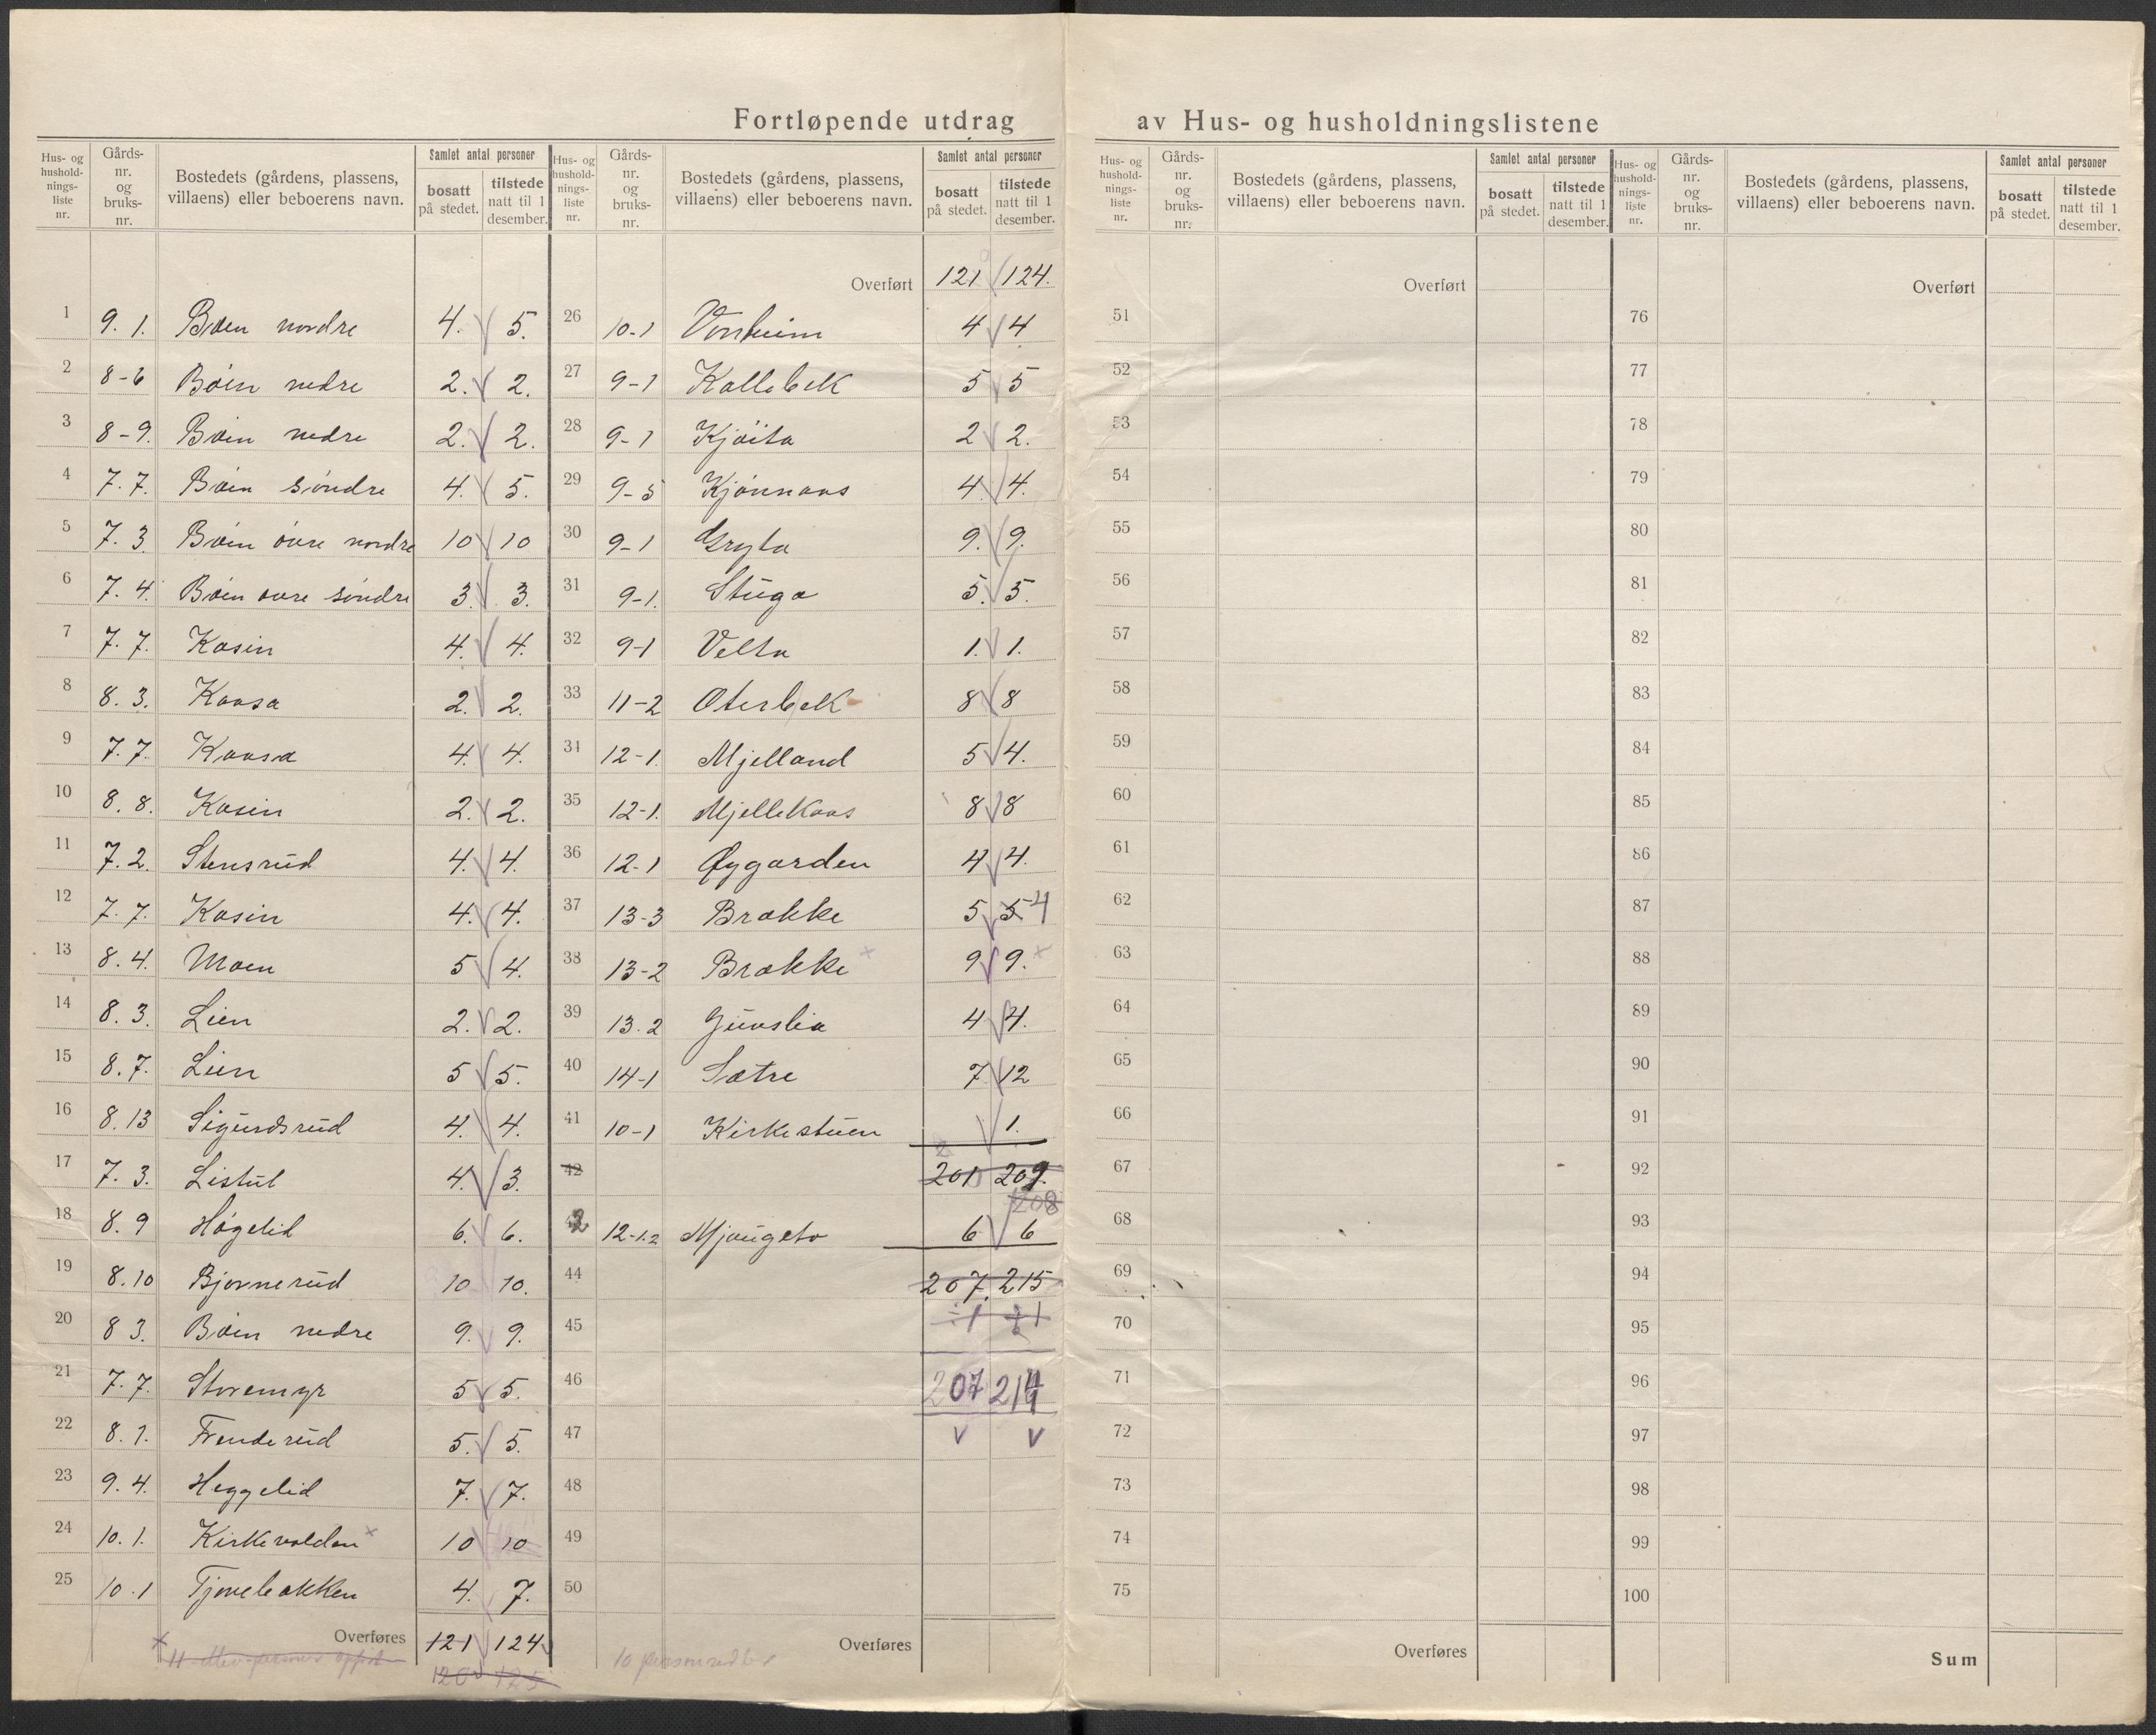 Fortløpende utdrag av Hus- og husholdningslistene
Hus- og husholdnings-liste nr. | Gårds-nr. og bruks-nr. | Bostedets (gårdens, plassens, villaens) eller beboerens navn. | Samlet antal personer | bosatt på stedet. | tilstede natt til 1 desember.
1 9. 1. Bøen nordre 4. 5.
2 8-6 Bøen nedre 2. 2.
3 8-9. Bøen nedre 2. 2.
4 7. 7. Bøen søndre 4. 5.
5 7. 3. Bøen øvre nordre 10 10
6 7. 4. Bøen øvre søndre 3. 3.
7 7. 7. Kasin 4. 4.
8 8. 3. Kaasa 2. 2.
9 7. 7. Kaasa 4. 4.
10 8. 8. Kasin 2. 2.
11 7. 2. Stensrud 4. 4.
12 7. 7. Kasin 4. 4.
13 8. 4. Moen 5 4.
14 8. 3. Lien 2. 2.
15 8. 7. Lien 5 5.
16 8. 13 Sigurdsrud 4. 4.
17 7. 3. Listul 4. 3.
18 8. 9 Høgelid 6. 6.
19 8. 10 Bjørnerud 10 10.
20 8 3. Bøen nedre 9. 9.
21 7. 7. Storemyr 5 5.
22 8. 1. Frenderud 5. 5.
23 9. 4. Heggelid 7. 7.
24 10. 1. Kirkevolden x 10 10
25 10. 1 Tjønebakken 4. 7.
Overføres 121 124
120 125
Hus- og husholdnings-liste nr. | Gårds-nr. og bruks-nr. | Bostedets (gårdens, plassens, villaens) eller beboerens navn. | Samlet antal personer | bosatt på stedet. | tilstede natt til 1 desember.
Overført 121 124.
26 10-1 Vonheim 4 4
27 9-1 Kallebek 5 5
28 9-1 Kjøita 2 2.
29 9-5 Kjønnaas 4. 4.
30 9-1 Gryta 9. 9.
31 9-1. Stuga 5. 5.
32 9-1 Velta 1. 1.
33 11-2 Oterbek 8 8
34 12-1. Mjelland 5 4.
35 12-1. Mjellekaas 8 8
36 12-1 Øygarden 4 4.
37 13-3 Brække 5 5 4
38 13-2 Brække x 9 9. x
39 13. 2 Guvslia 4 4.
40 14-1 Sætre 7 12
41 10-1 Kirkestuen 1.
42 201 209.
208
43 12-1.2 Mjaugeto 6 6
44 207. 215
45 ÷1
46 207 214
47
48
49
50
Overføres
Hus- og husholdnings-liste nr. | Gårds-nr. og bruks-nr. | Bostedets (gårdens, plassens, villaens) eller beboerens navn. | Samlet antal personer | bosatt på stedet. | tilstede natt til 1 desember.
Overført
51
52
53
54
55
56
57
58
59
60
61
62
63
64
65
66
67
68
69
70
71
72
73
74
75
Overføres
Hus- og husholdnings-liste nr. | Gårds-nr. og bruks-nr. | Bostedets (gårdens, plassens, villaens) eller beboerens navn. | Samlet antal personer | bosatt på stedet. | tilstede natt til 1 desember.
Overført
76
77
78
79
80
81
82
83
84
85
86
87
88
89
90
91
92
93
94
95
96
97
98
99
100
Sum